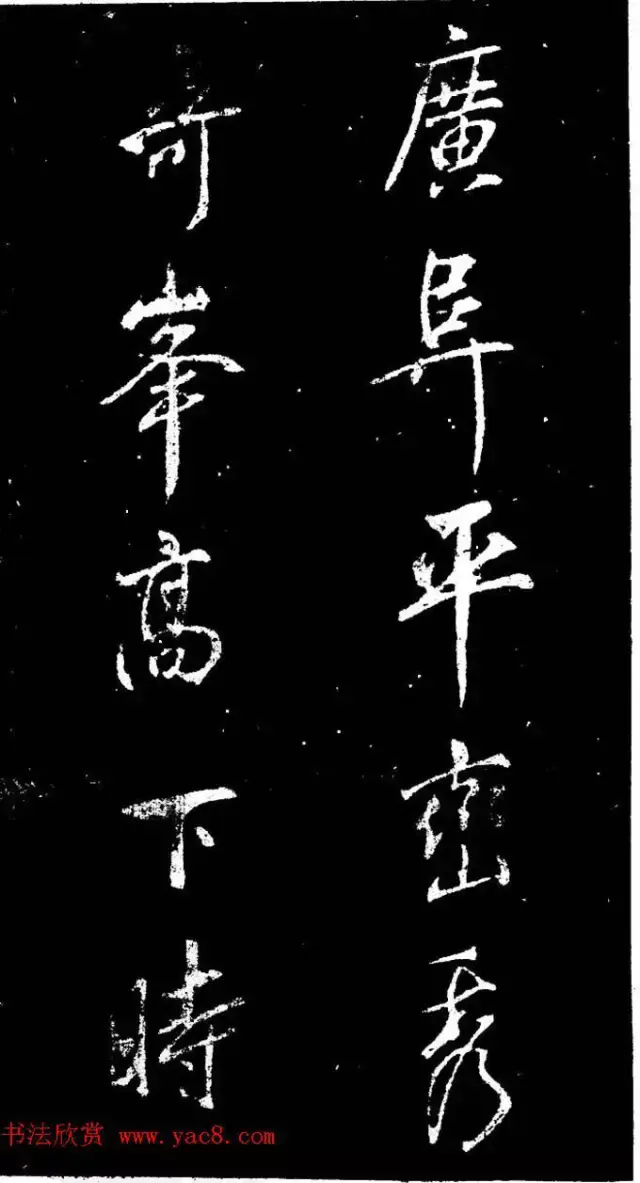 廣阜平巒秀
奇峯高下時
书法欣赏 www.yac8.com